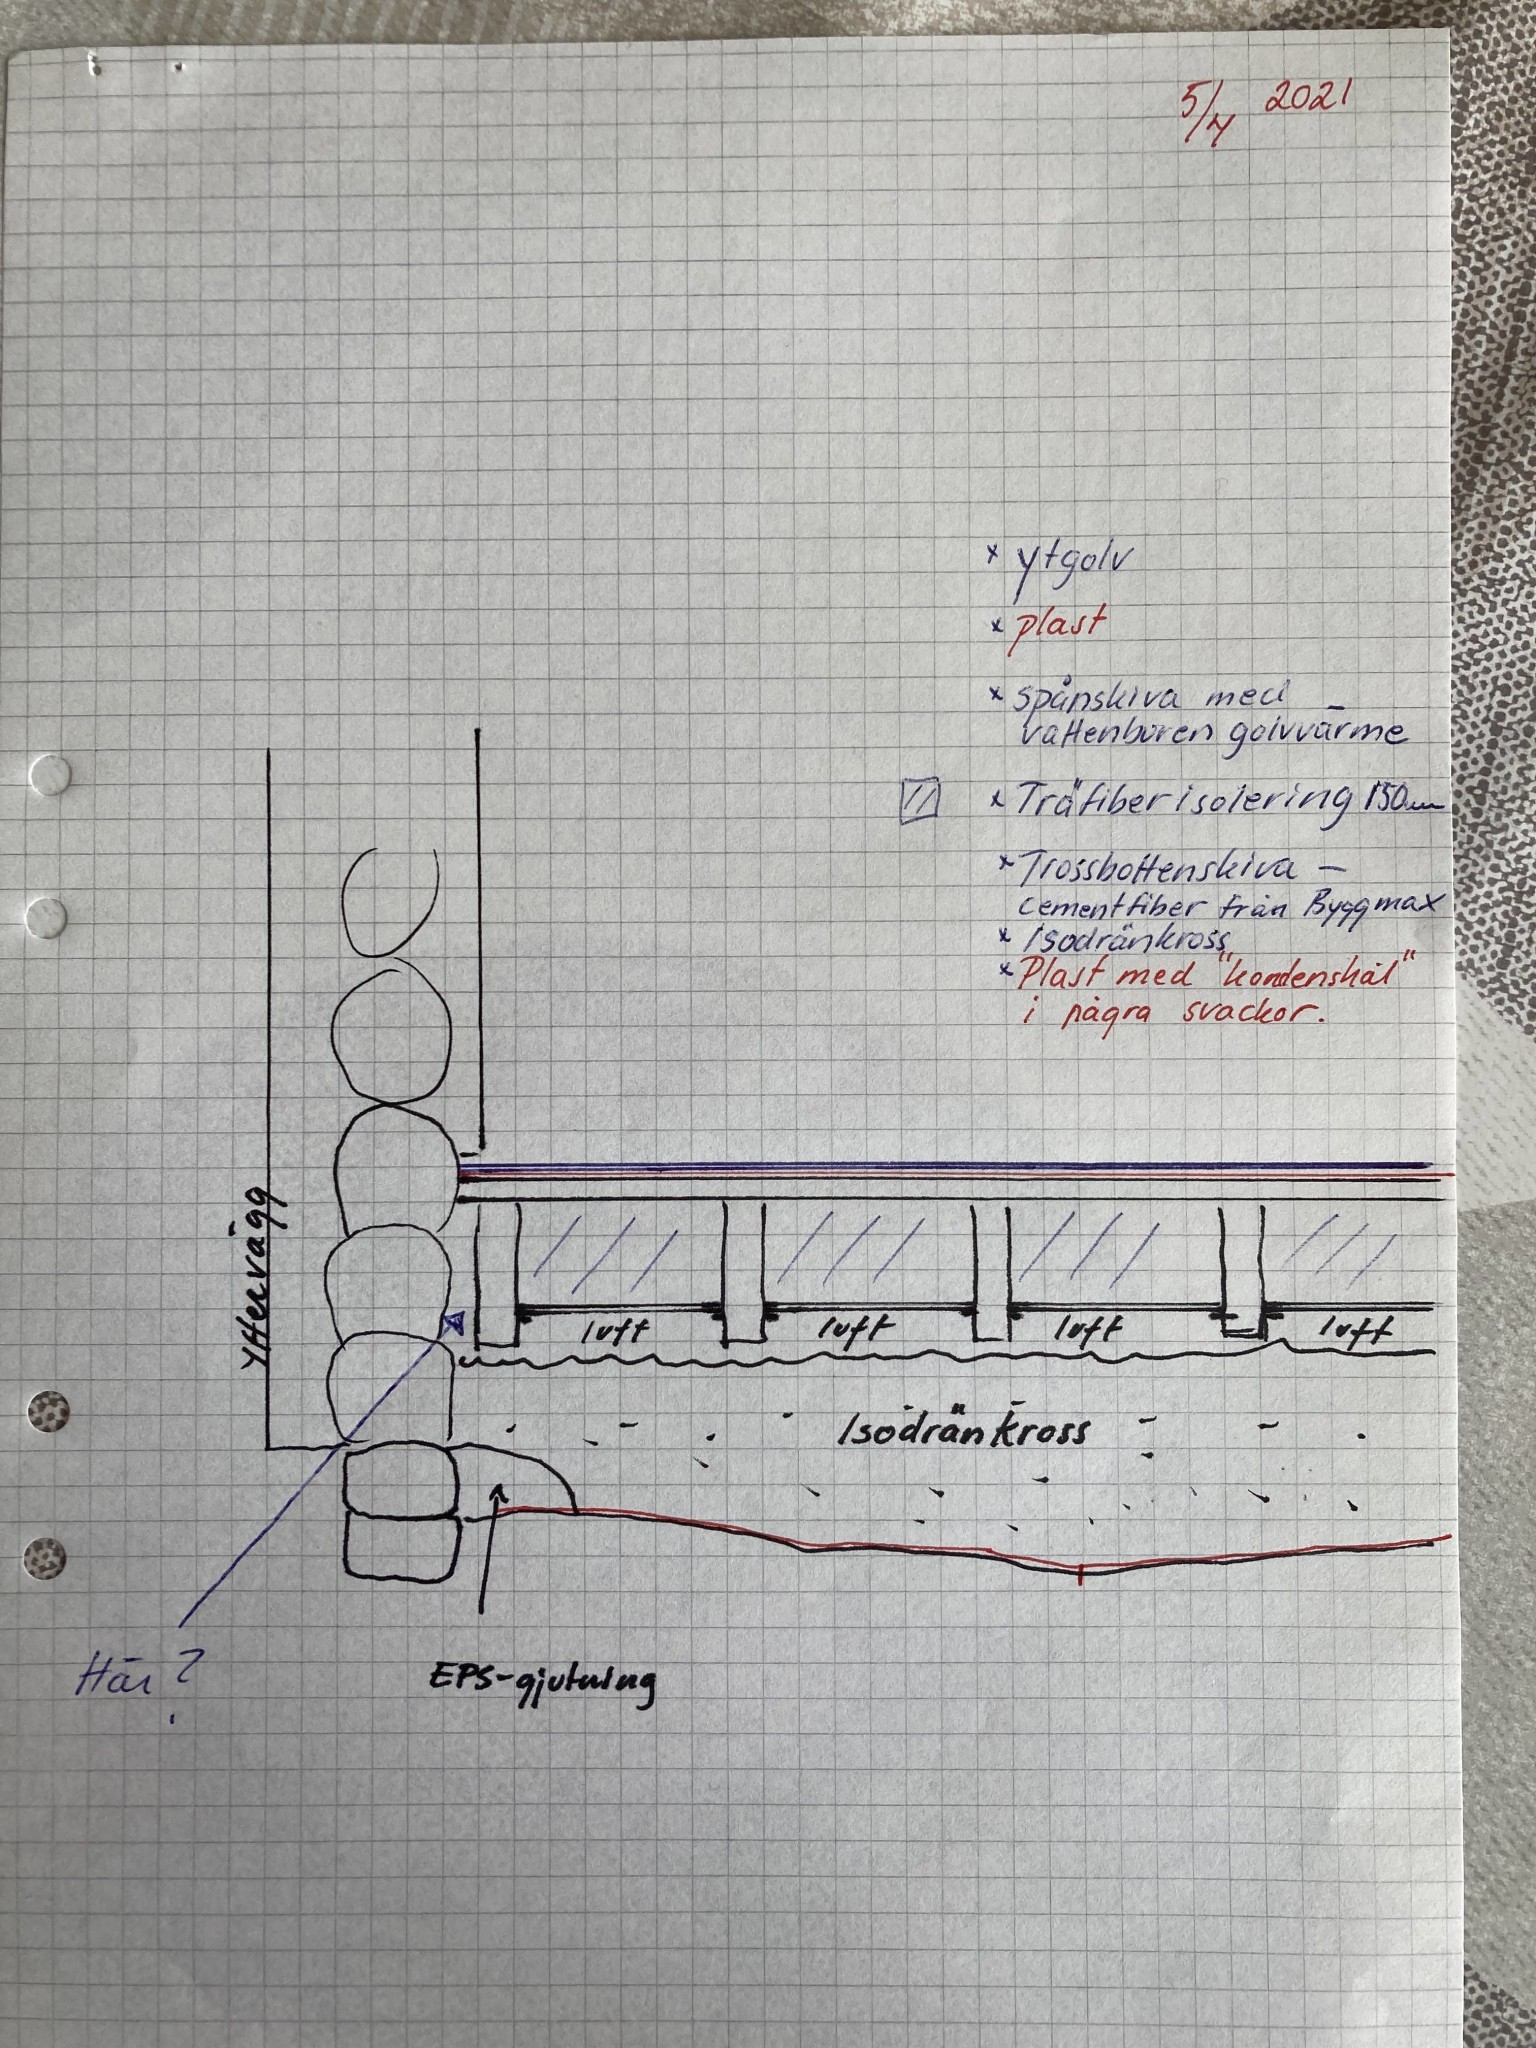 5/4 2021
* ytgolv
* plast
* spånskiva med
vattenburen golvvärme
* Träfiberisolering 150mm
* Trossbottenskiva -
cementfiber från Byggmax
* Isodränkross
* Plast med "kondenshål"
i några svackor.
Yttervägg
luft luft luft luft
Isodränkross
Här?
EPS-gjutning